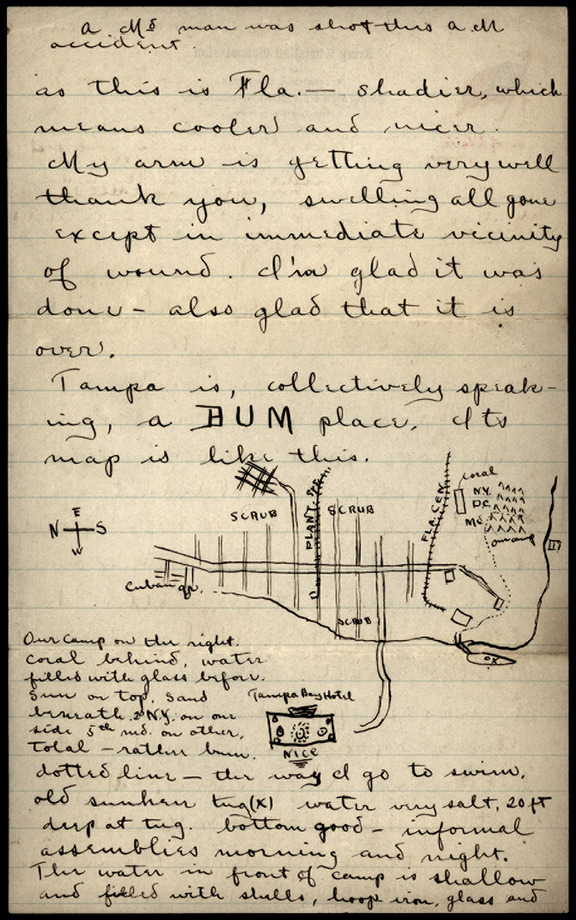 A Md man was shot this a.M
accident.
as this is Fla. — shadier, which
means cooler and nicer.
My arm is getting very well
thank you, swelling all gone
except in immediate vicinity
of wound. I'm glad it was
done - also glad that it is
over.
Tampa is, collectively speak-
ing, a BUM place. Its
map is like this.
coral
N.Y.
D.C.
Md
our camp
SCRUB
PLANT
SCRUB
FLA CEN
E
N S
W
Cuban qr.
SCRUB
Our camp on the right.
Coral behind, water
filled with glass before.
Sun on top, sand
beneath, 2d N.Y. on one
side 5th md. on other,
total - rather bum.
Tampa Bay Hotel
NICE
dotted line - the way I go to swim.
old sunken tug (X) water very salt, 20 ft
deep at tug. bottom good - informal
assemblies morning and night.
The water in front of camp is shallow
and filled with shells, hoop iron, glass and